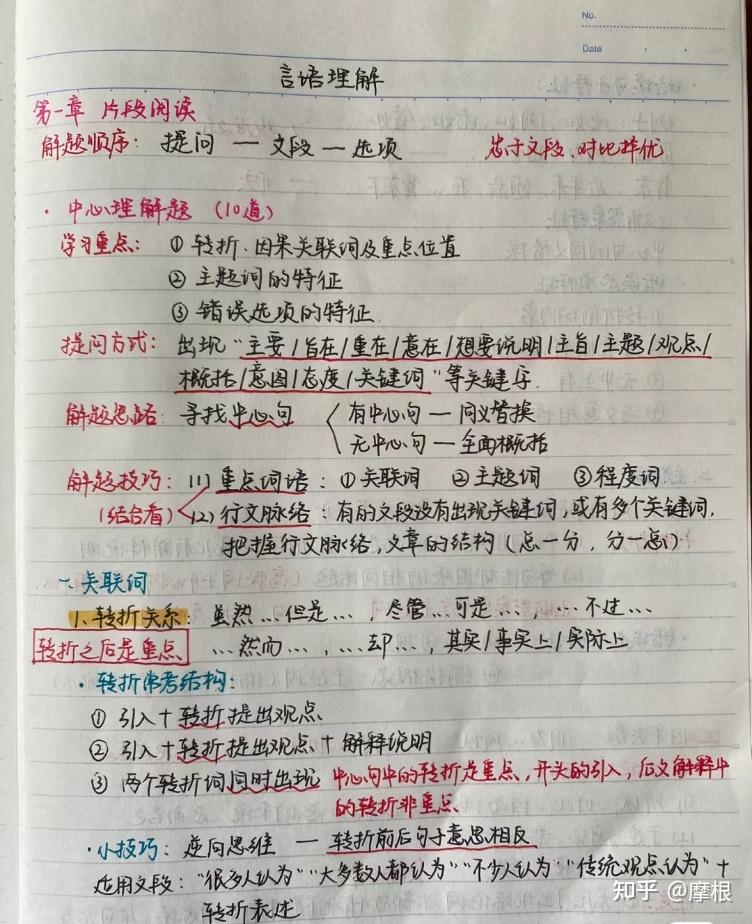 No.
Date
言语理解
第一章 片段阅读
解题顺序：提问 — 文段 — 选项 忠于文段、对比择优
· 中心理解题（10道）
学习重点：① 转折、因果关联词及重点位置
② 主题词的特征
③ 错误选项的特征
提问方式：出现“主要/旨在/重在/意在/想要说明/主旨/主题/观点/
概括/意图/态度/关键词”等关键字.
解题思路：寻找中心句 有中心句 — 同义替换
无中心句 — 全面概括
解题技巧：(1) 重点词语：① 关联词 ② 主题词 ③ 程度词
（结合看） (2) 行文脉络：有的文段没有出现关键词，或有多个关键词，
把握行文脉络，文章的结构（总一分，分一总）
一、关联词
1. 转折关系：虽然…但是…，尽管…可是…，…不过…
转折之后是重点 …然而…，…却…，其实/事实上/实际上
· 转折常考结构：
① 引入＋转折提出观点
② 引入＋转折提出观点＋解释说明
③ 两个转折词同时出现 中心句中的转折是重点，开头的引入，后文解释中
的转折非重点
· 小技巧：逆向思维 — 转折前后句子意思相反
适用文段：“很多人认为”“大多数人都认为”“不少人认为”“传统观点认为”＋
转折表述
知乎 @摩根